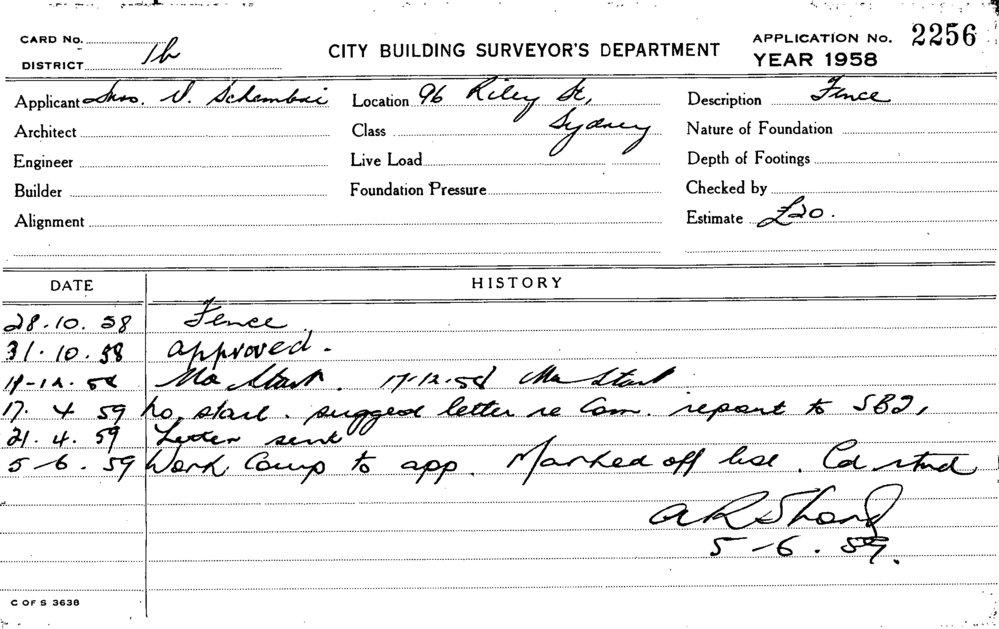 CARD No.
DISTRICT 1h
CITY BUILDING SURVEYOR'S DEPARTMENT
APPLICATION No. 2256
YEAR 1958
Applicant Mrs. V. Schembri
Location 96 Riley St,
Sydney
Description Fence
Architect
Class
Nature of Foundation
Engineer
Live Load
Depth of Footings
Builder
Foundation Pressure
Checked by
Alignment
Estimate £20.
DATE HISTORY
28.10.58 Fence
31.10.58 approved.
No Start. 17-12-58 No Start
17.4.59 no start. suggest letter re Com. report to SBI,
21.4.59 Letter sent
5-6.59 Work Comp to app. Marked off list. Cd
5-6.59.
C OF S 3638